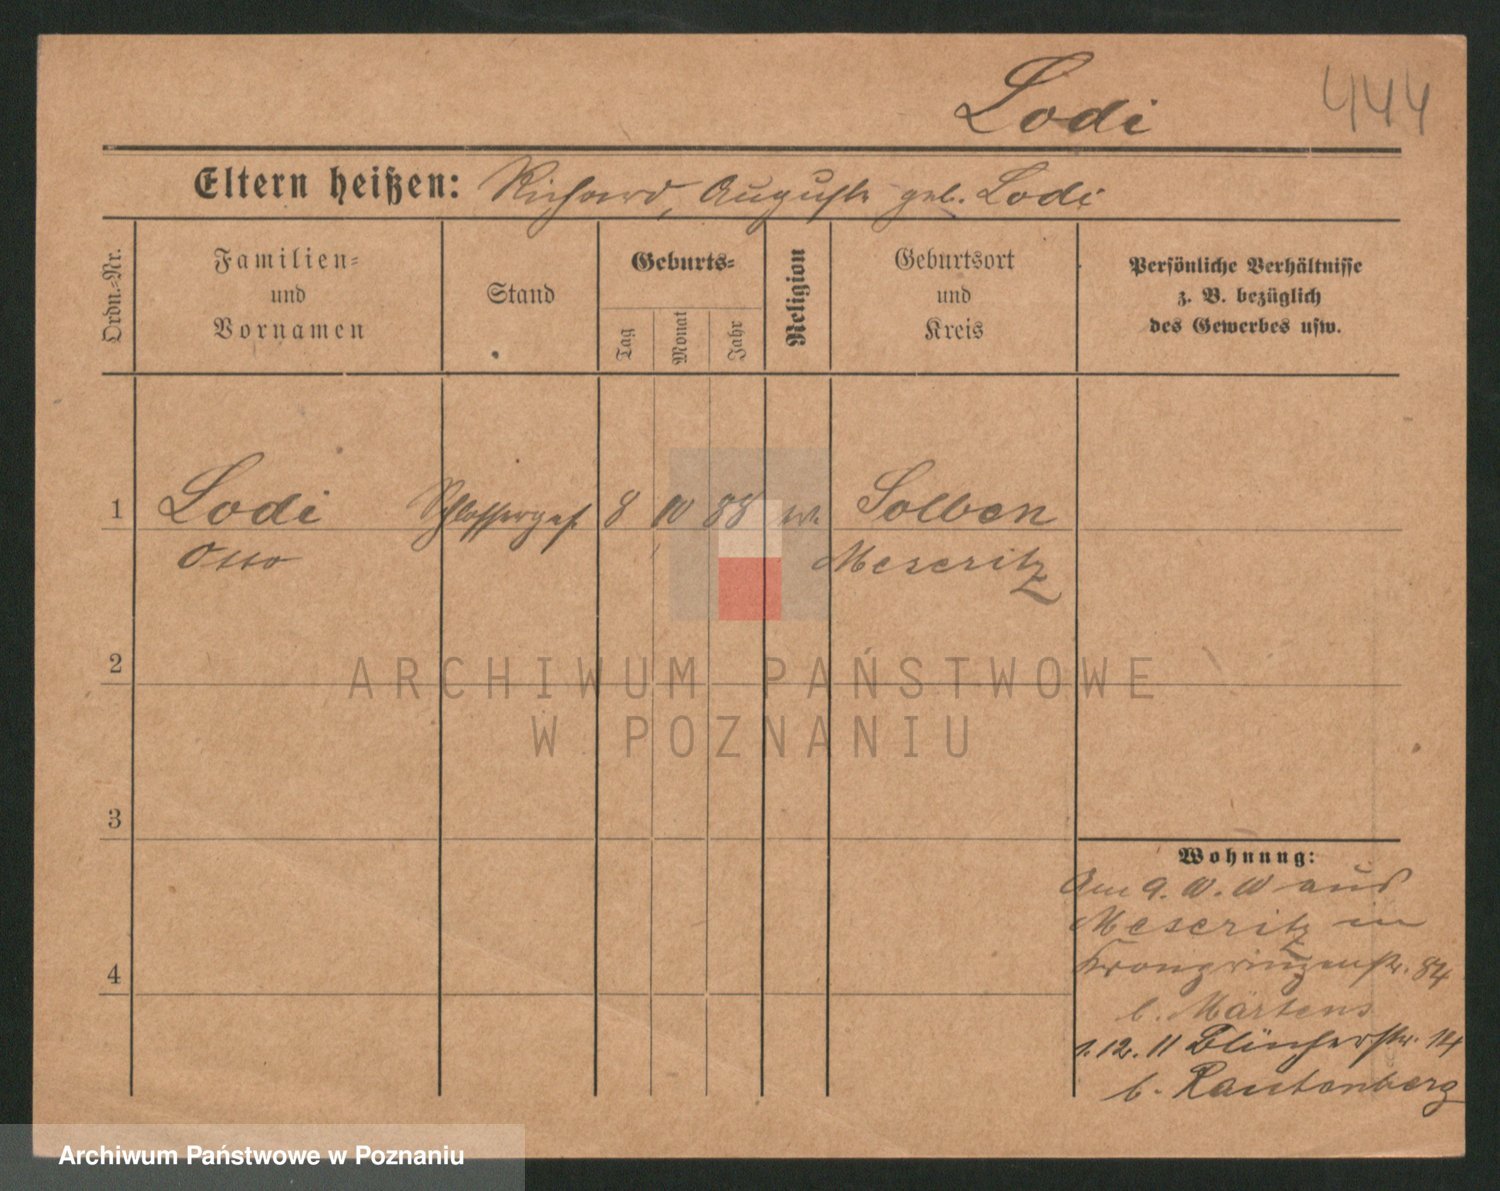 Lodi 444
Eltern heißen: Richard, Auguste geb. Lodi
Ordn.-Nr.
Familien-
und
Vornamen
Stand
Geburts-
Tag
Monat
Jahr
Religion
Geburtsort
und
Kreis
Persönliche Verhältnisse
z. B. bezüglich
des Gewerbes usw.
1 Lodi Schlosserges. 8 10 88 ev. Solben
Otto Meseritz
2
3
4
Wohnung:
Am 9. 10. 10 aus
Meseritz in
Kronprinzenstr. 84
b. Märtens
1. 12. 11 Blücherstr. 14
b. Rautenberg
ARCHIWUM PAŃSTWOWE
W POZNANIU
Archiwum Państwowe w Poznaniu